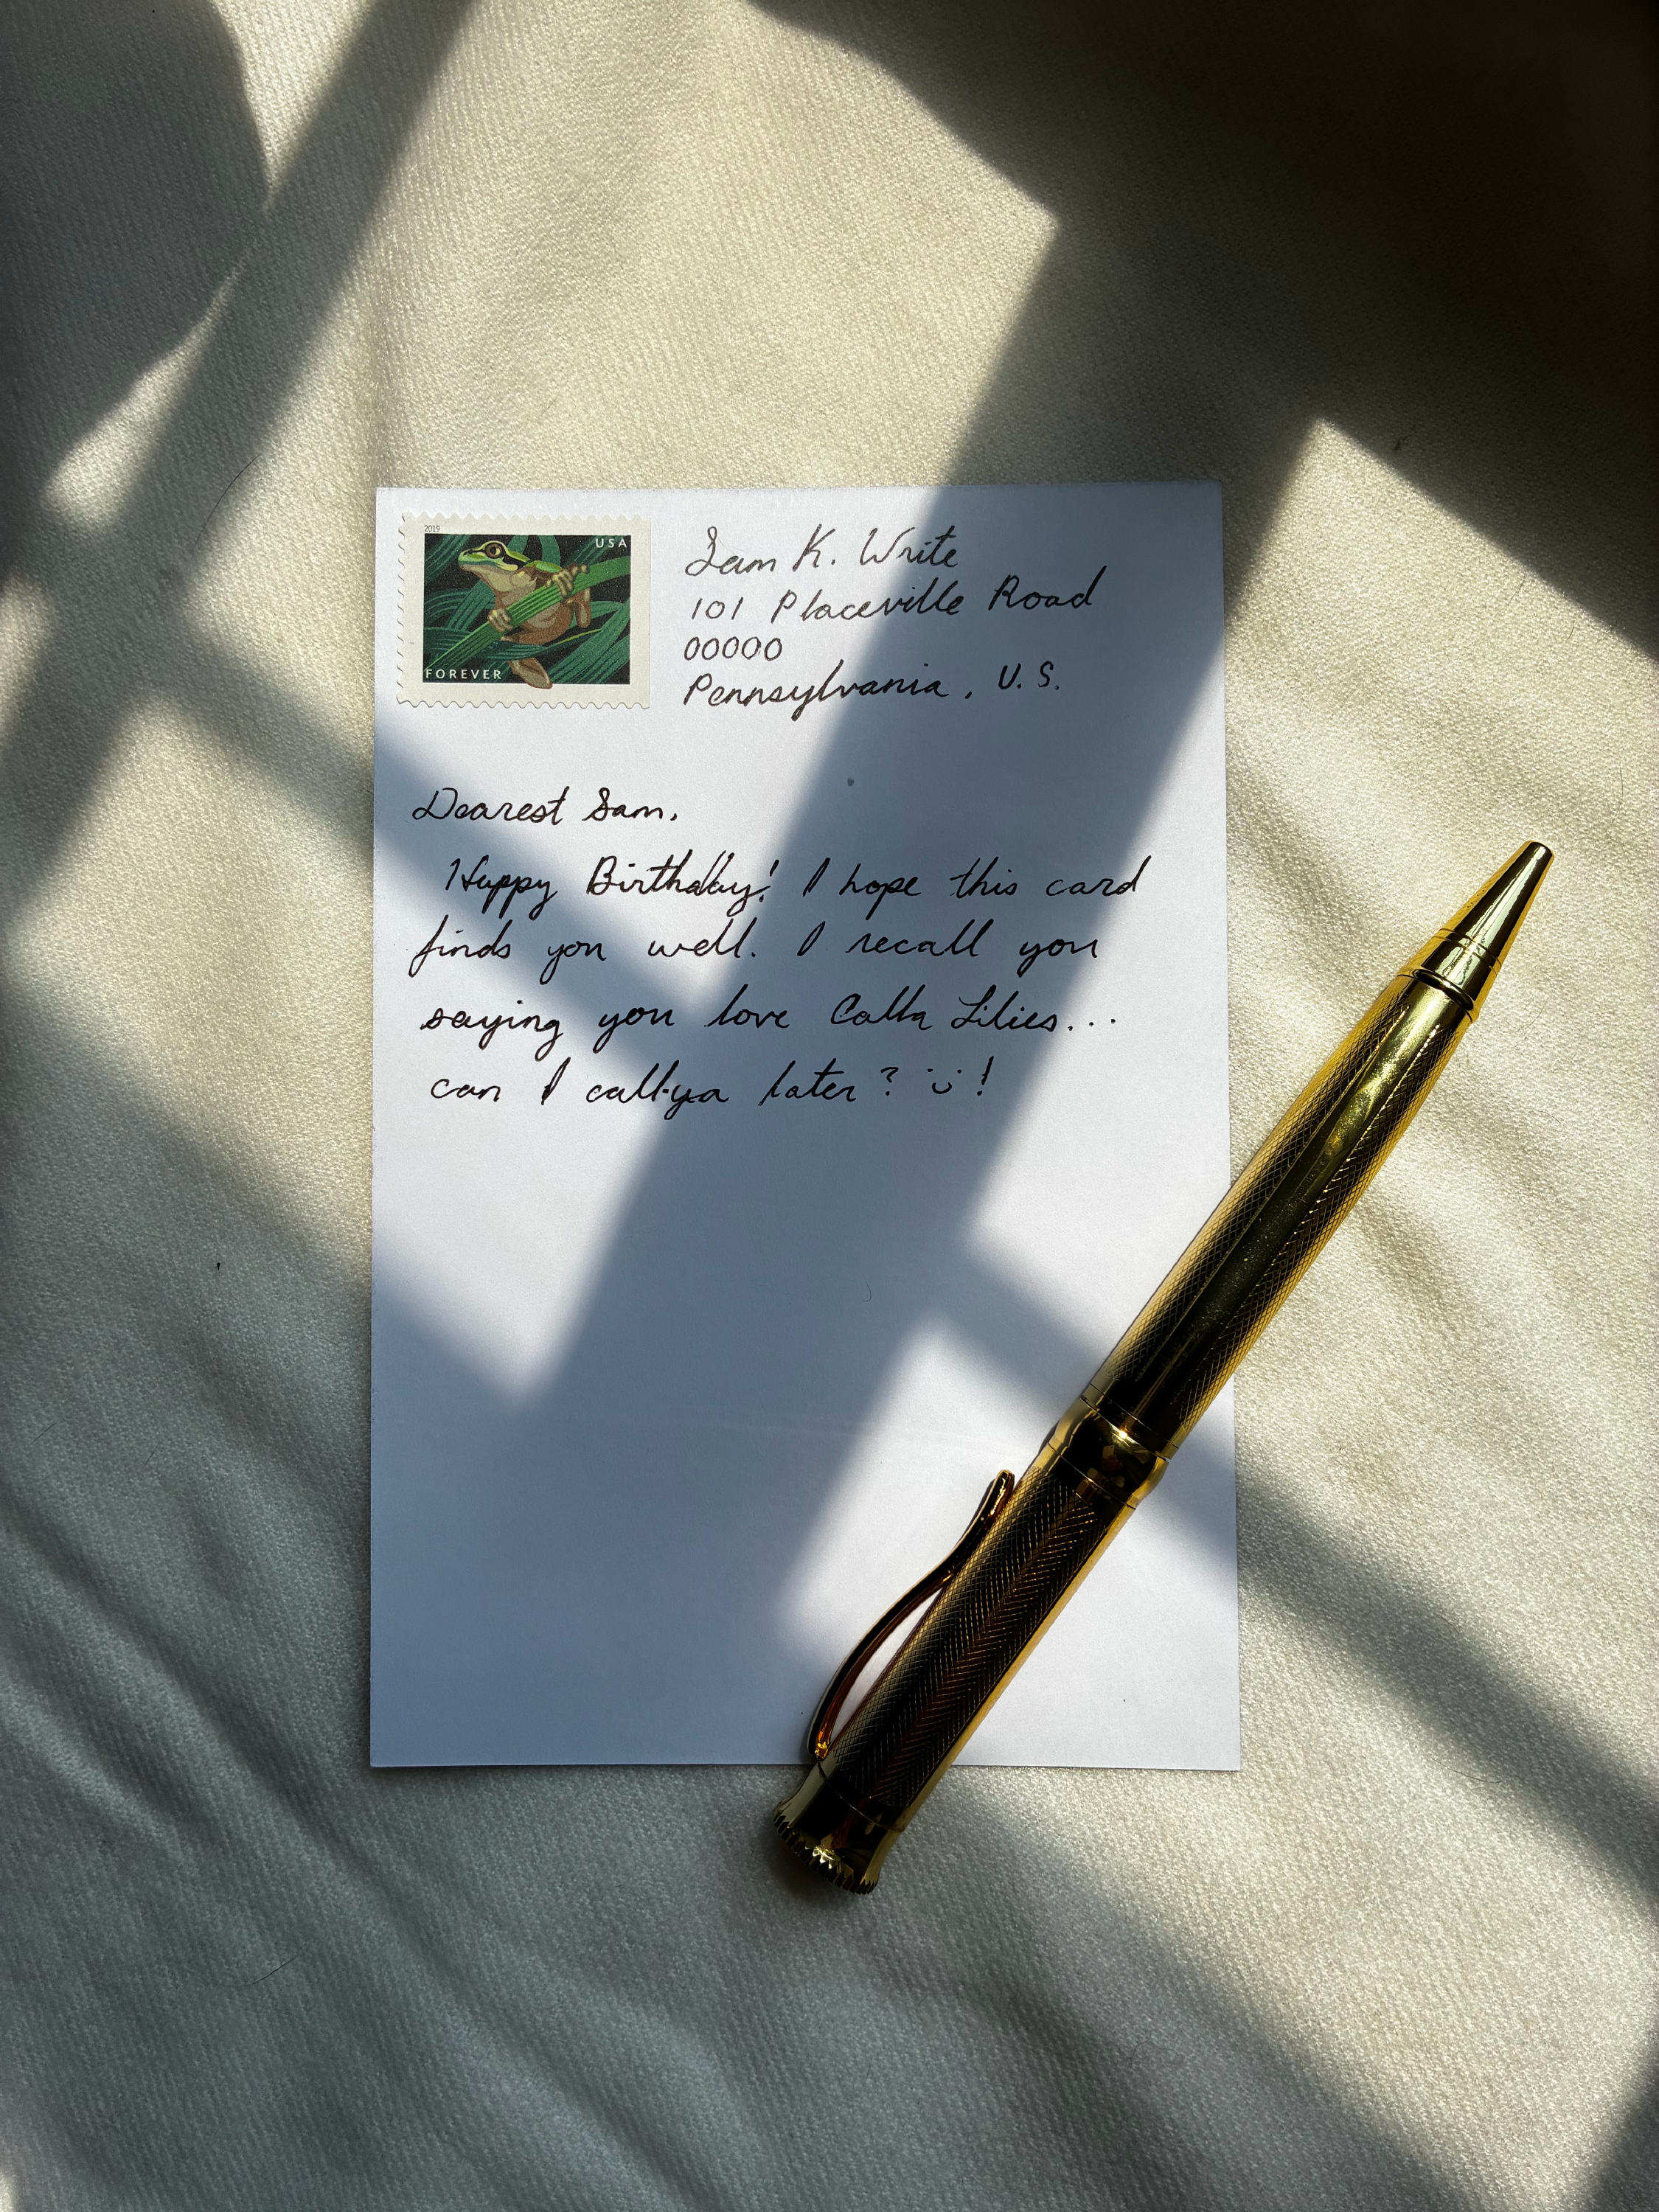 2019
USA
FOREVER
Sam K. Write
101 Placeville Road
00000
Pennsylvania, U.S.
Dearest Sam,
Happy Birthday! I hope this card
finds you well. I recall you
saying you love Calla Lilies...
can I call-ya later? :)!